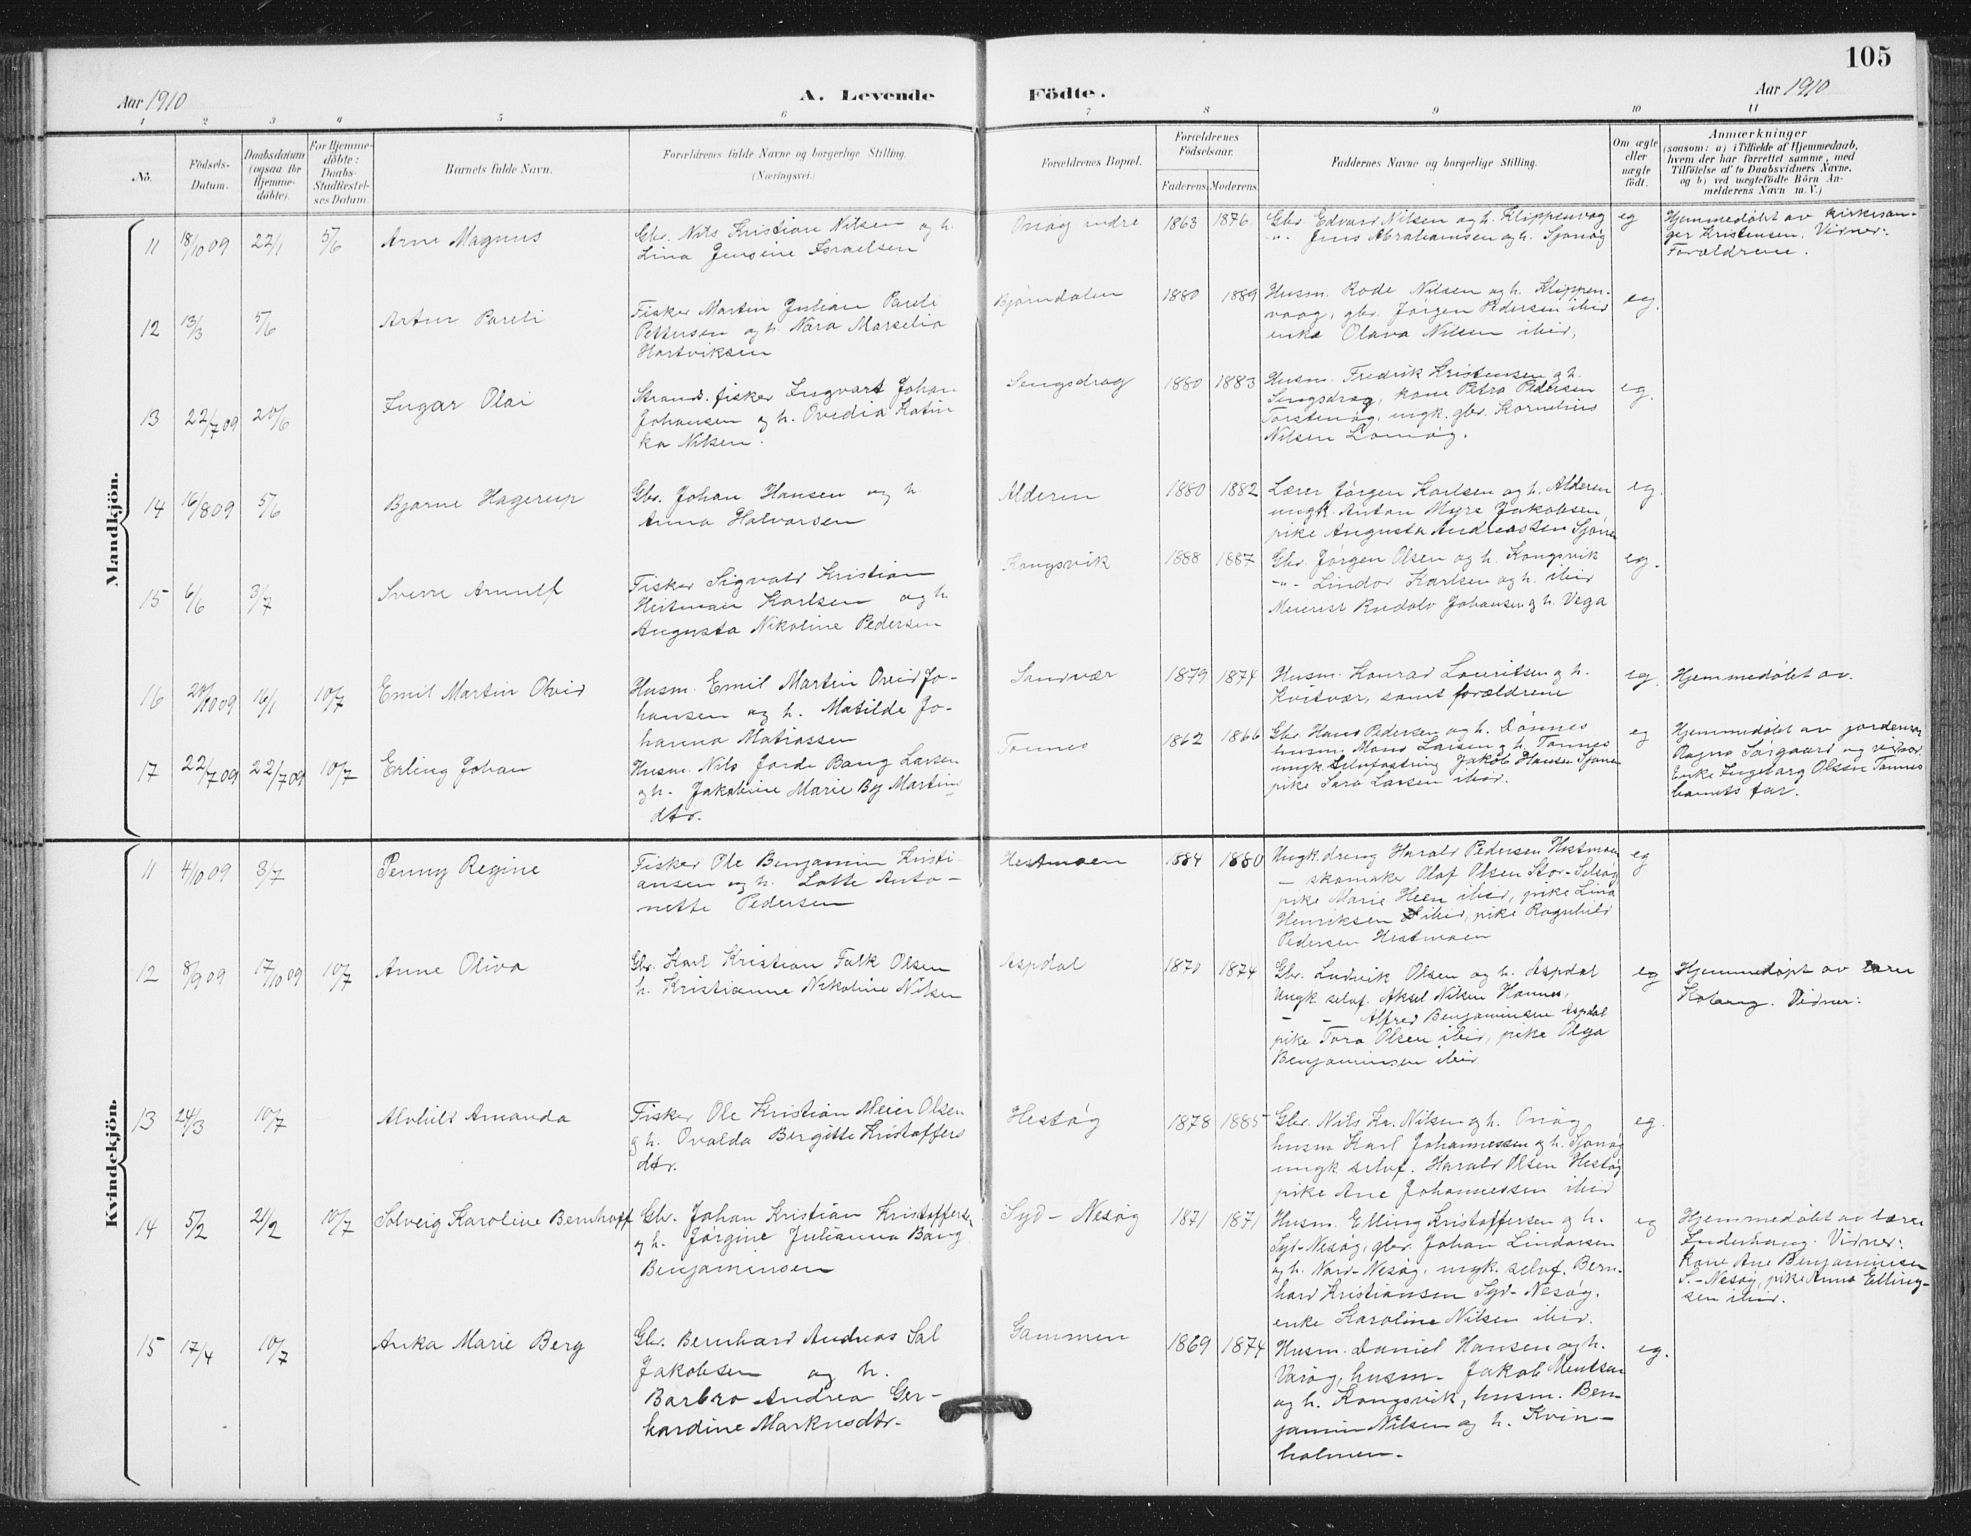 105
Aar 1910 A. Levende Födte. Aar 1910
1 2 3 4 5 6 7 8 9 10 11
No.
Födsels-Datum.
Daabsdatum (ogsaa for Hjemme-döbte).
For Hjemme-döbte: Daabs-Stadfæstel-ses Datum.
Barnets fulde Navn.
Forældrenes fulde Navne og borgerlige Stilling.
(Næringsvei.)
Forældrenes Bopæl.
Forældrenes Födselsaar.
Faderens. Moderens.
Faddernes Navne og borgerlige Stilling.
Om ægte eller uægte födt.
Anmærkninger
(saasom: a) i Tilfælde af Hjemmedaab,
hvem der har forrettet samme, med
Tilföielse af to Daabsvidners Navne,
og b) ved uægtefödte Börn An-
melderens Navn m. V.)
Mandkjön.
11 18/10 09 22/1 5/6 Arne Magnus
Gbr. Nils Kristian Nilsen og h.
Lina Jensine Israelsen
Onøy indre 1863 1876
Gbr. Edvard Nilsen og h. Klippenvog
"- Jens Abrahamsen og h. Sjonøy
eg
Hjemmedøbt av kirkesan-
ger Kristensen. Vidner:
Forældrene.
12 13/3 5/6 Artur Pareli
Fisker Martin Julian Pareli
Pettersen og h. Nära Marselia
Hartviksen
Bjørndalen 1880 1889
Husm. Rode Nilsen og h. Klippen-
vaag, gbr. Jørgen Pedersen ibid
enke Olava Nilsen ibid,
eg.
13 22/7 09 20/6 Ingar Olai
Strands. fisker Ingvart Johan
Johansen og h. Ovedia Katin
ka Nilsen.
Sengsdrag 1880 1883
Husm. Fredrik Kristensen og h.
Sengsdrag, kone Petra Pedersen
Torstenøy, ungk. gbr. Kornelius
Nilsen Lomøy.
eg.
14 16/8 09 5/6 Bjarne Hagerup
Gbr. Johan Hansen og h.
Anna Halvorsen
Alderen 1880 1882
Lærer Jørgen Karlsen og h. Alderen
ungk. Anton Myre Jakobsen
pike Augusta Andreassen Sjonen
eg.
15 6/6 3/7 Sverre Arnulf
Fisker Sigvald Kristian
Heitman Karlsen og h
Augusta Nikoline Pedersen
Kongsvik 1888 1887
Gbr. Jørgen Olsen og h. Kongsvik
-"- Lindor Karlsen og h. ibid
Meierist Rudolv Johansen og h. Vega
eg.
16 20/10 09 16/1 10/7 Emil Martin Ovid
Husm. Emil Martin Ovid Jo-
hansen og h. Matilde Jo-
hanna Matiassen
Sandvær 1879 1874
Husm. Konrad Lauritsen og h.
Kvitvær, samt forældrene
eg.
Hjemmedøbt av.
17 22/7 09 22/7 09 10/7 Erling Johan
Husm. Nils Jorde Bang Larsen
og h. Jakobine Marie By Martins
dtr.
Tonnes 1862 1866
Gbr. Hans Pedersen og h. Dønnes
husm. Mons Larsen og h. Tonnes
ungk. selvfostring Jakob Hansen Sjonen
pike Sara Larsen ibid.
eg
Hjemmedøbt av jordemor
Ragna Sørgaard og vidner.
Enke Ingeborg Olsen Tonnes
barnets far.
Kvindekjön.
11 4/10 09 3/7 Penny Regine
Fisker Ole Benjamin Kristi-
ansen og h. Lotte Anto-
nette Pedersen
Hestmoen 1884 1880
Ungk. dreng Harald Pedersen Hestmoen
- skomaker Olaf Olsen Stor-Selsøy
pike Marie Heen ibid, pike Lina
Henriksen ibid, pike Ragnhild
Pedersen Hestmoen
eg
12 8/9 09 17/10 09 10/7 Anne Oliva
Gbr. Karl Kristian Falk Olsen
h. Kristianne Nikoline Nilsen
Aspdal 1870 1874
Gbr. Ludvik Olsen og h. Aspdal
Ungk. selvf. Aksel Nilsen Hannes,
- - Alfred Benjaminsen Aspdal
pike Tora Olsen ibid, pike Olga
Benjaminsen ibid
eg
Hjemmedøpt av lærer
Koberg. Vidner:
13 24/3 10/7 Alvhild Amanda
Fisker Ole Kristian Meier Olsen
og h. Ovalda Bergitte Kristoffers
dtr.
Hestøy 1878 1885
Gbr. Nils Kr. Nilsen og h. Onøy
husm Karl Johannessen og h. Sjonøy
ungk selvf. Harald Olsen Hestøy
pike Ane Johannessen ibid
eg.
14 5/2 21/2 10/7 Solveig Karoline Bernhoff
Gbr. Johan Kristian Kristoffersen
og h. Jørgine Julianna Bang
Benjaminsen
Syd-Nesøy 1871 1871
Husm. Elling Kristoffersen og h.
Syd-Nesøy, gbr. Johan Lindorsen
og h. Nord-Nesøy. ungk. selvf. Bern-
hard Kristiansen Syd-Nesøy.
enke Karoline Nilsen ibid.
eg
Hjemmedøbt av lærer
Vidner:
kone Ane Benjaminsen
S.-Nesøy, pike Anna Elling-
sen ibid.
15 17/4 10/7 Anka Marie Berg
Gbr. Bernhard Andreas Sal
Jakobsen og h.
Barbro Andrea Ger-
hardine Markusdtr.
Gammen 1869 1874
Husm. Daniel Hansen og h.
Varøy, husm. Jakob Mentsen
og h. Kongsvik, husm. Ben-
jamin Nilsen og h. Kvin-
holmen.
eg.